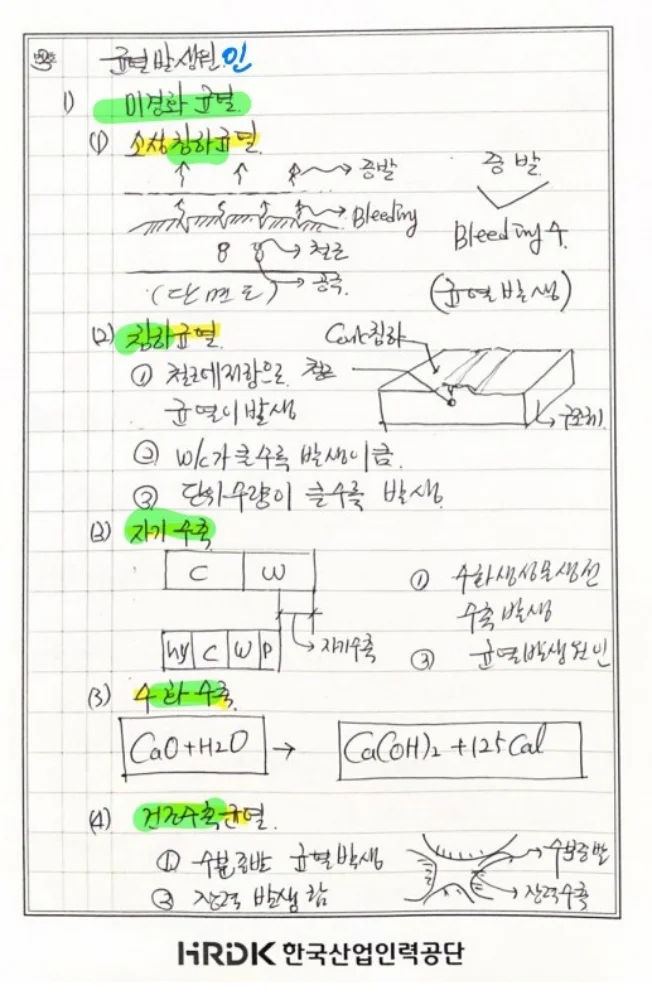 균열발생원인
1) 미경화 균열.
(1) 소성침하균열.
증발
Bleeding
철근
공극.
(단면도)
증발
Bleeding수.
(균열발생)
(2) 침하균열.
Conc침하
① 철근에저항으로 철근
균열이발생
구조체
② W/C가 클수록 발생이큼.
③ 단위수량이 클수록 발생.
(3) 자기수축
C W
① 수화생성물생선
수축발생
hy C W P
자기수축
③ 균열발생원인
(3) 수화수축.
CaO+H2O → Ca(OH)2 +125Cal
(4) 건조수축균열.
① 수분증발 균열발생
수분증발
② 장력 발생함
장력수축
HRDK 한국산업인력공단